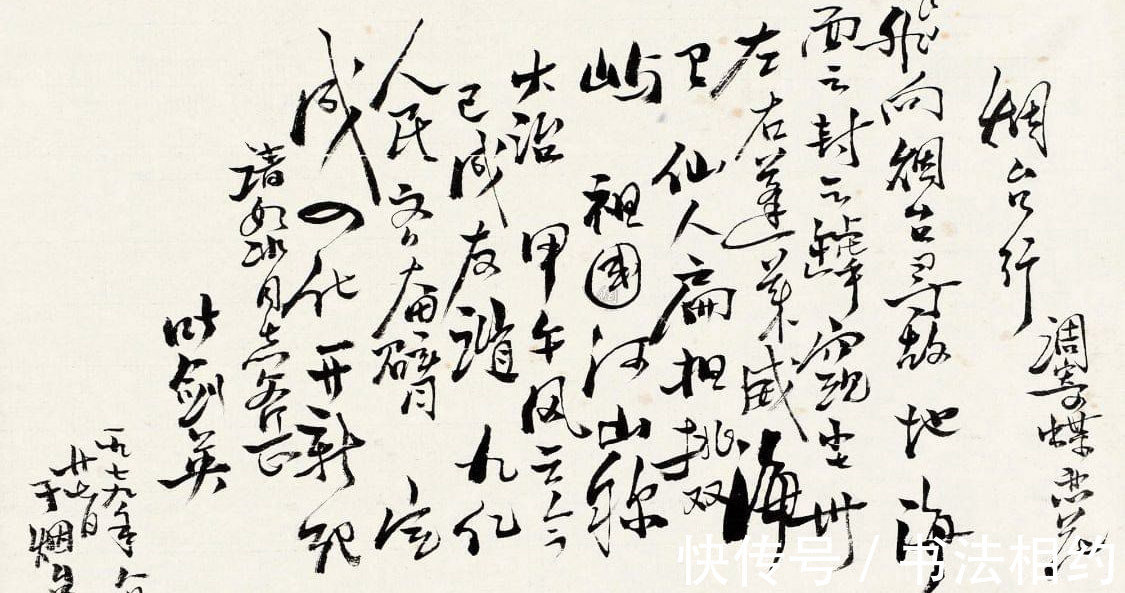 烟台行
调寄蝶恋花
飞向烟台寻故地 海
面云封云罅窥尘世
左右蓬莱威海
卫 仙人扁担挑双
屿 祖国河山称
大治 甲午风云今
已成友谊 九亿
人民齐奋臂 完
成四化开新纪
请如冰同志斧正
叶剑英
一九七九年
廿七日
于烟台
快传号 / 书法相约